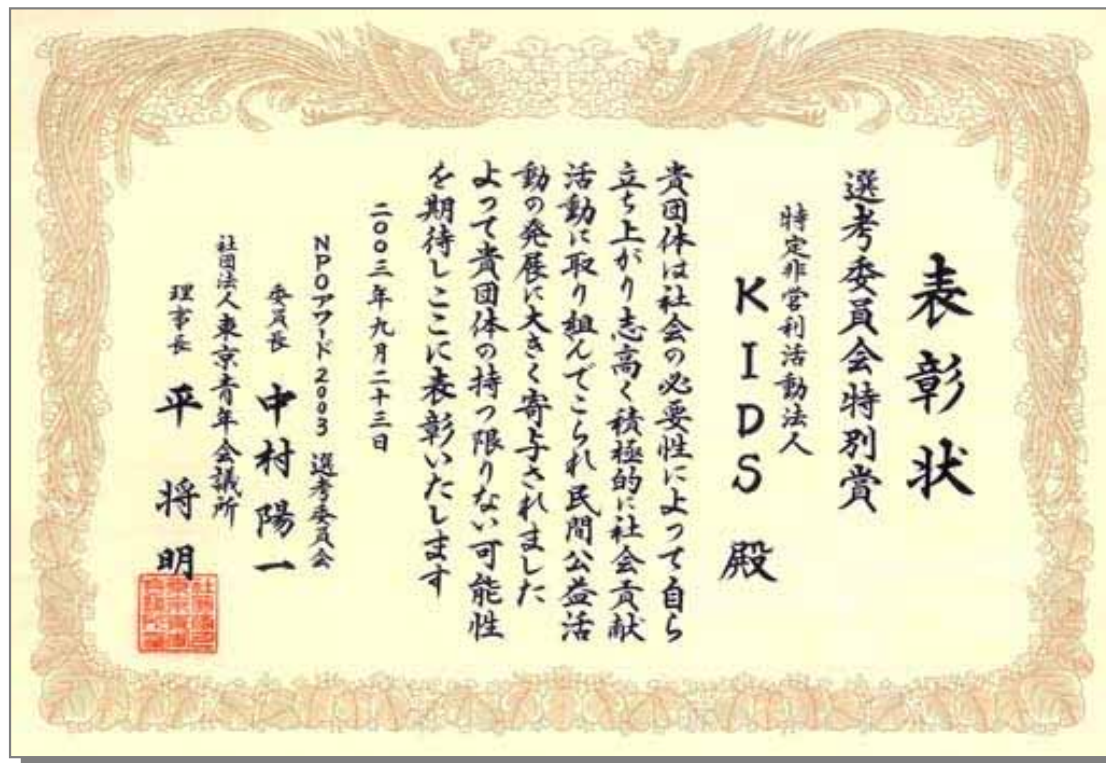 表彰状
選考委員会特別賞
特定非営利活動法人
KIDS 殿
貴団体は社会の必要性によって自ら
立ち上がり志高く積極的に社会貢献
活動に取り組んでこられ民間公益活
動の発展に大きく寄与されました
よって貴団体の持つ限りない可能性
を期待しここに表彰いたします
二〇〇三年九月二十三日
NPOアワード2003 選考委員会
委員長 中村陽一
社団法人東京青年会議所
理事長 平 将明